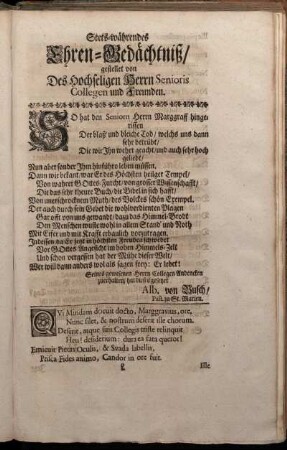 Stets-währendes
Ehren-Gedächtniß/
gestellet von
Des Hochseligen Herrn Senioris
Collegen und Freunden.
SO hat den Seniorn Herrn Marggraff hinge-
rissen
Der blaß und bleiche Tod/ welchs uns dann
sehr betrübt/
Die wir Ihn wehrt geacht/ und auch sehr hoch
geliebt/
Nun aber sonder Ihm hinführo leben müssen.
Dann wie bekant/ war Er des Höchsten heilger Tempel/
Von wahrer Gottes-Furcht/ von grosser Wissenschafft/
Die das sehr theure Buch/ die Bibel in sich hafft/
Von unerschrocknem Muth/ des Volckes schön Exempel.
Der auch durch sein Gebet die wohlverdienten Plagen
Gar offt von uns gewandt/ dazu das Himmel-Brodt
Den Menschen wuste wohl in allem Creutz und Noth
Mit Eifer und mit Krafft erbaulich vorzutragen.
Indessen da Er jetzt in höchsten Freuden schwebet
Vor Gottes Angesicht im hohen Himmels-Zelt
Und schon vergessen hat der Mühe dieser Welt/
Wer wil dann anders wol als sagen frey: Er lebet!
Seines gewesenen Herrn Collegen Andencken
zu erhalten/ hat dieses gesetzet
Alb. von Busch/
Past. zu St. Marien.
QVi Mundum docuit docto, Marggravius, ore,
Nunc silet, & nostrum deserit ille chorum.
Deserit, inque suis Collegis triste relinquit
Heu! desiderium: dum ea fata queror!
Emicuit Pietas Oculis, & Suada labellis,
Prisca Fides animo, Candor in ore fuit.
Ille